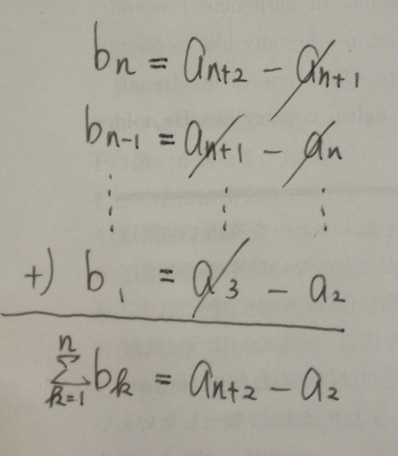 bₙ = aₙ₊₂ - aₙ₊₁
bₙ₋₁ = aₙ₊₁ - aₙ
⋮ ⋮ ⋮
+) b₁ = a₃ - a₂
∑ₖ₌₁ⁿ bₖ = aₙ₊₂ - a₂